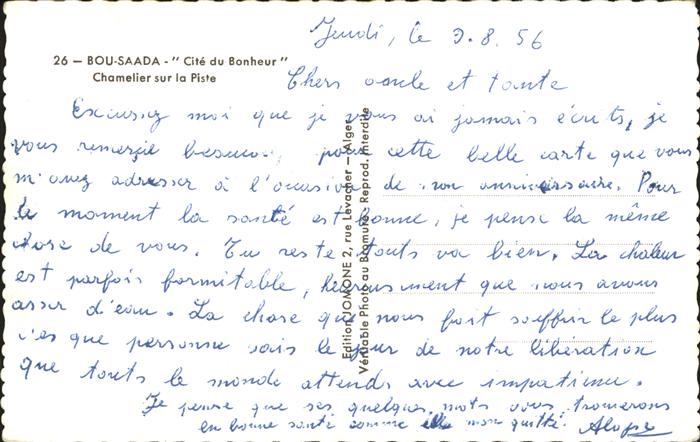 Jeudi, le 9.8.56
26 — BOU-SAADA - " Cité du Bonheur "
Chamelier sur la Piste
Chers oncle et tante
Excusez moi que je vous ai jamais écrits, je
vous remerçie beaucou, pour cette belle carte que vous
m'avez adresser à l'occasion de mon anniversaire. Pour
le moment la santé est bonne, je pense la même
chose de vous. Tu reste touts va bien. La chaleur
est parfois formitable, heureusment que nous avons
asser d'eau. La chose que nous fait souffrir le plus
c'es que personne sais le jour de notre libération
que touts le monde attends avec impatience.
Je pense que ses quelques mots vous trouverons
en bonne santé comme elle mon quitté.
Edition JOMONE 2, rue Levacher — Alger
Véritable Photo au Bromure - Reprod. interdite